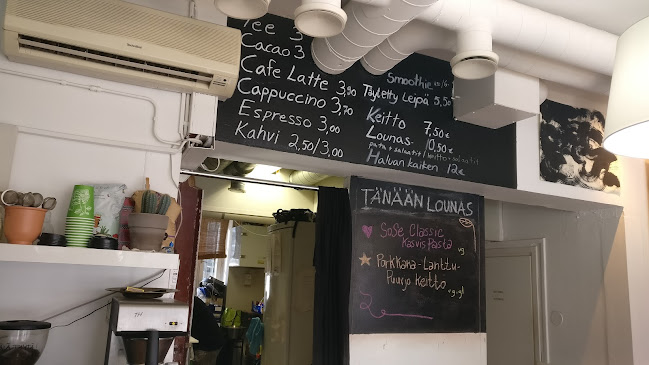 Tee 3
Cacao 3
Cafe Latte 3,90
Cappuccino 3,70
Espresso 3,00
Kahvi 2,50/3,00
Smoothie
Täytetty Leipä 5,50
Keitto 7,50€
Lounas 10,50€
pasta + salaatti / keitto + salaatti
Haluan kaiken 12€
TÄNÄÄN LOUNAS
SoSe Classic
Kasvis Pasta vg
Porkkana-Lanttu-
Pyyrjo Keitto vg,gl